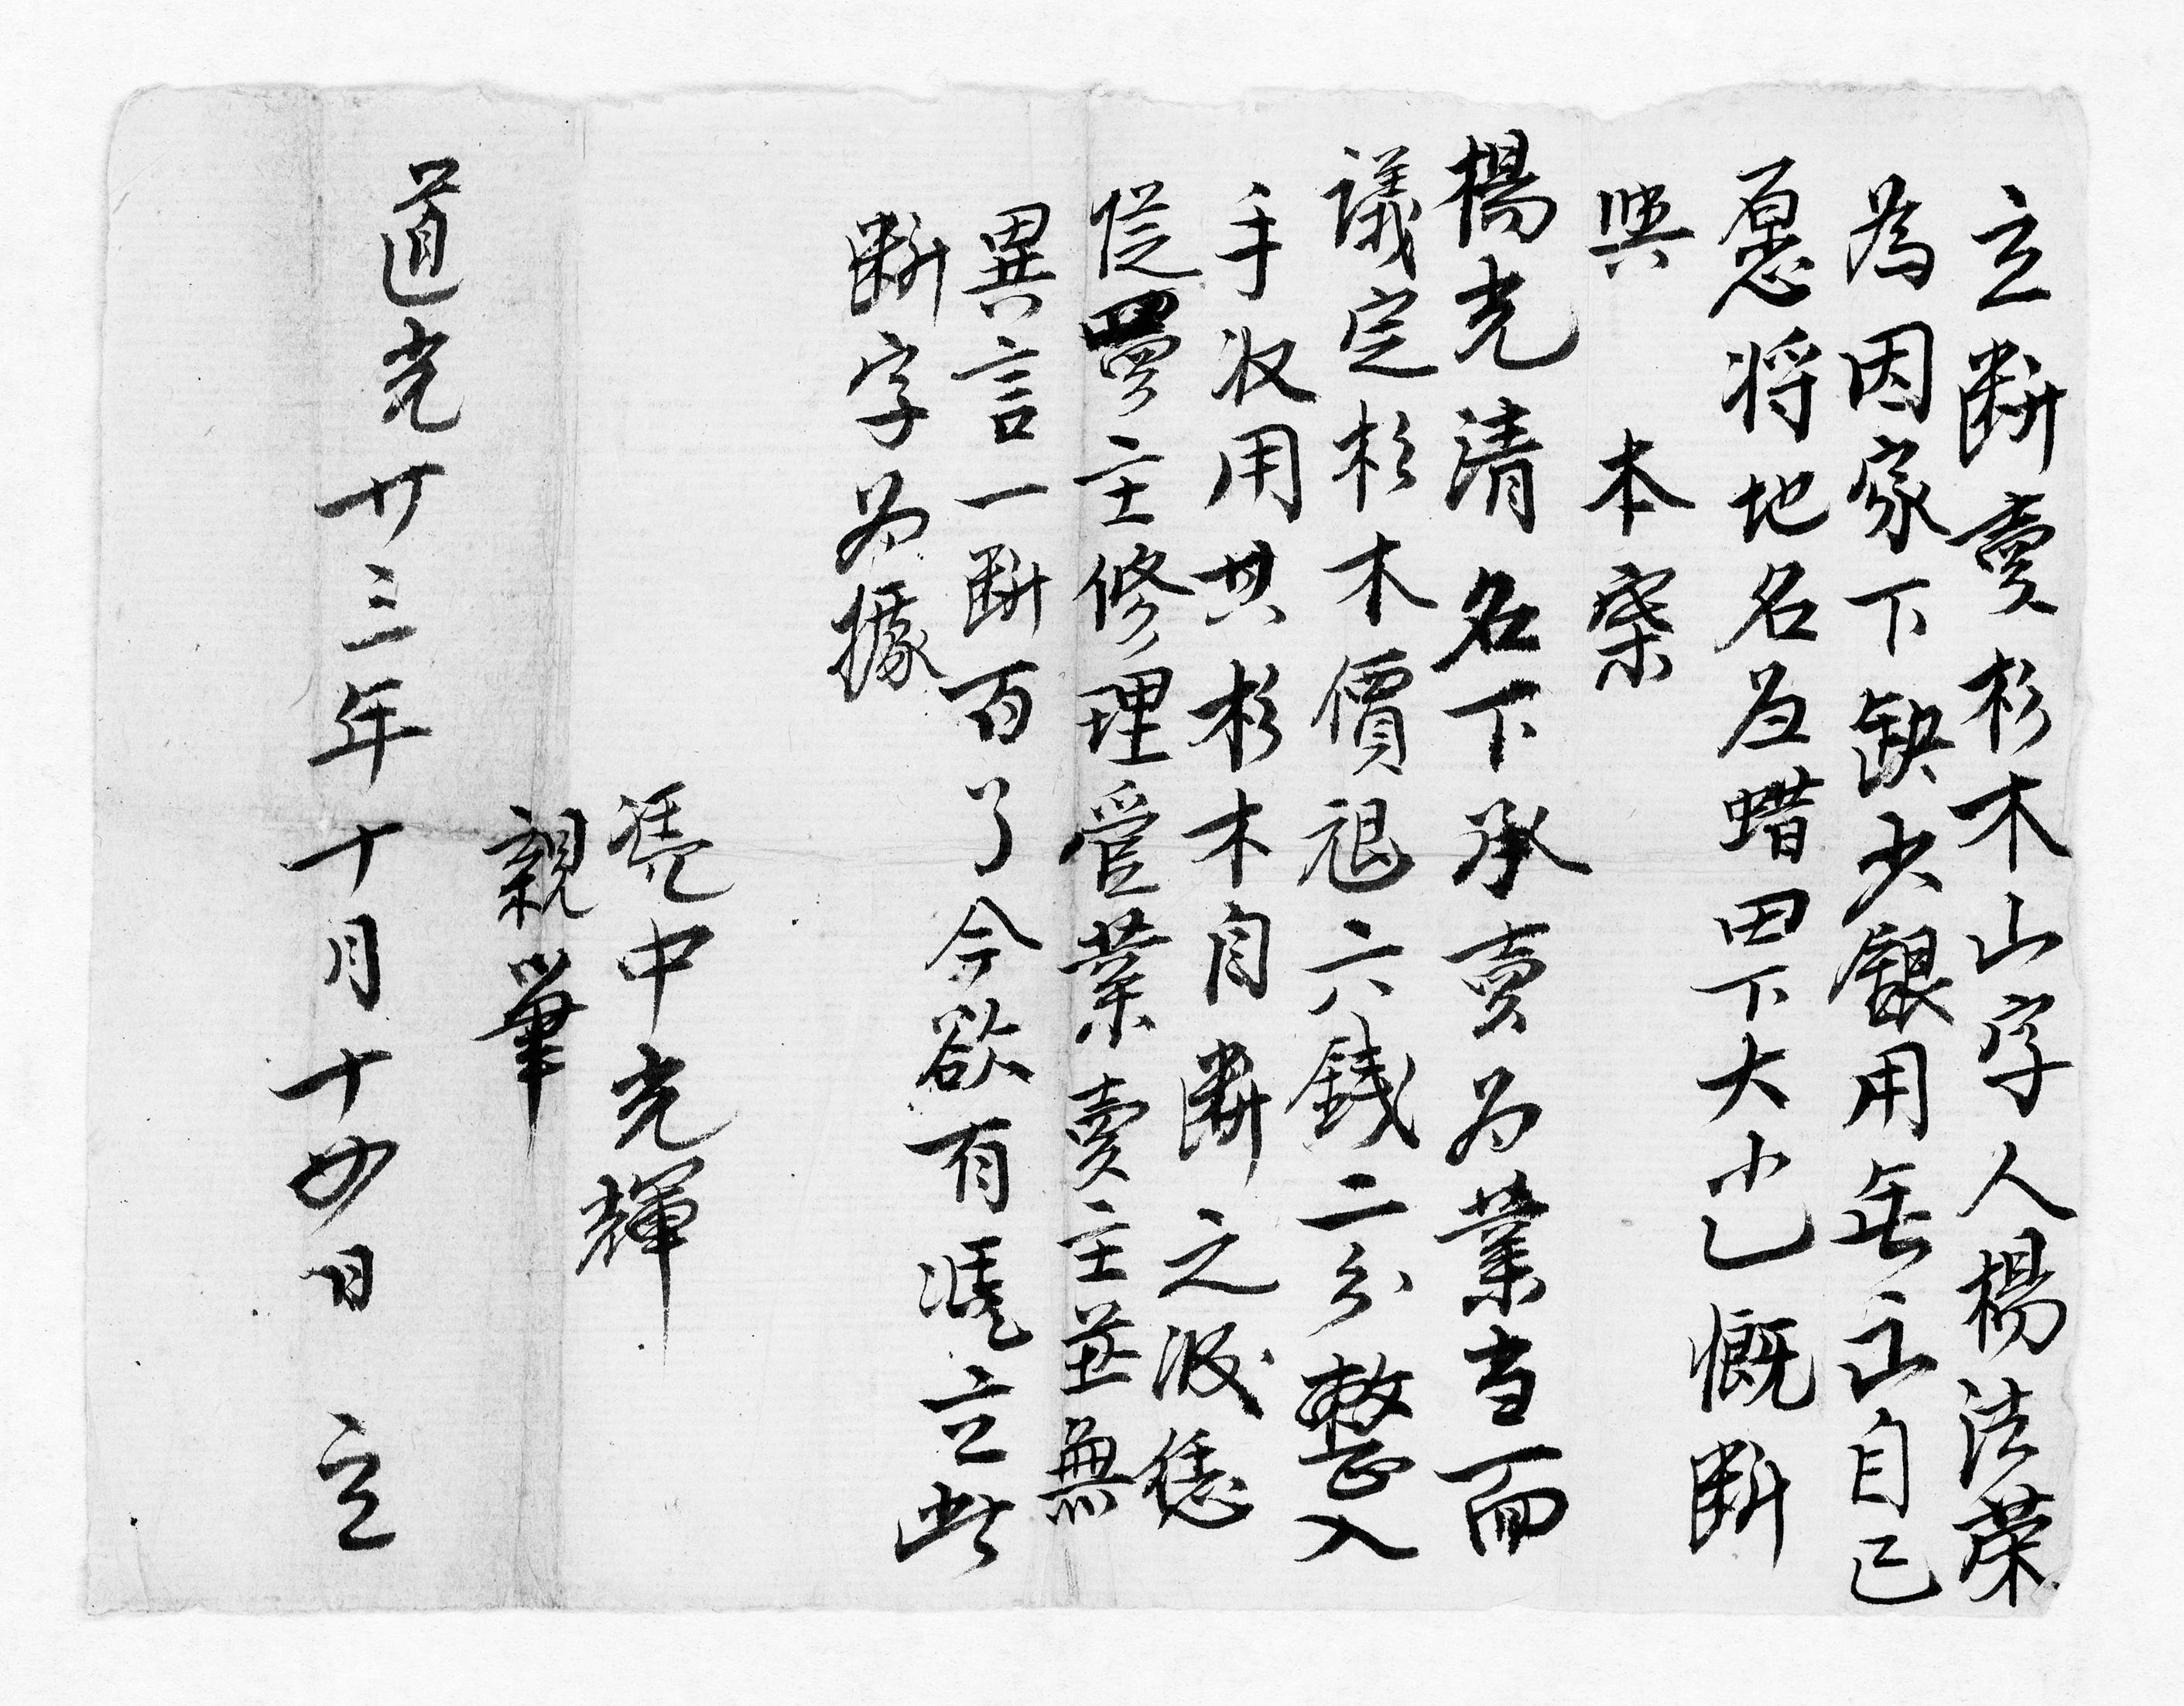 立断賣杉木山字人楊法荣
為因家下缺少銀用無出自己
愿將地名為蜡田下大小乙慨断
與 本寨
楊光清名下承賣为業当面
議定杉木價艮六錢二分整入
手收用其杉木自断之後恁
從買主修理管業賣主並無
異言一断百了今欲有凴立此
断字为據
凴中光輝
親筆
道光廿三年十月十四日 立